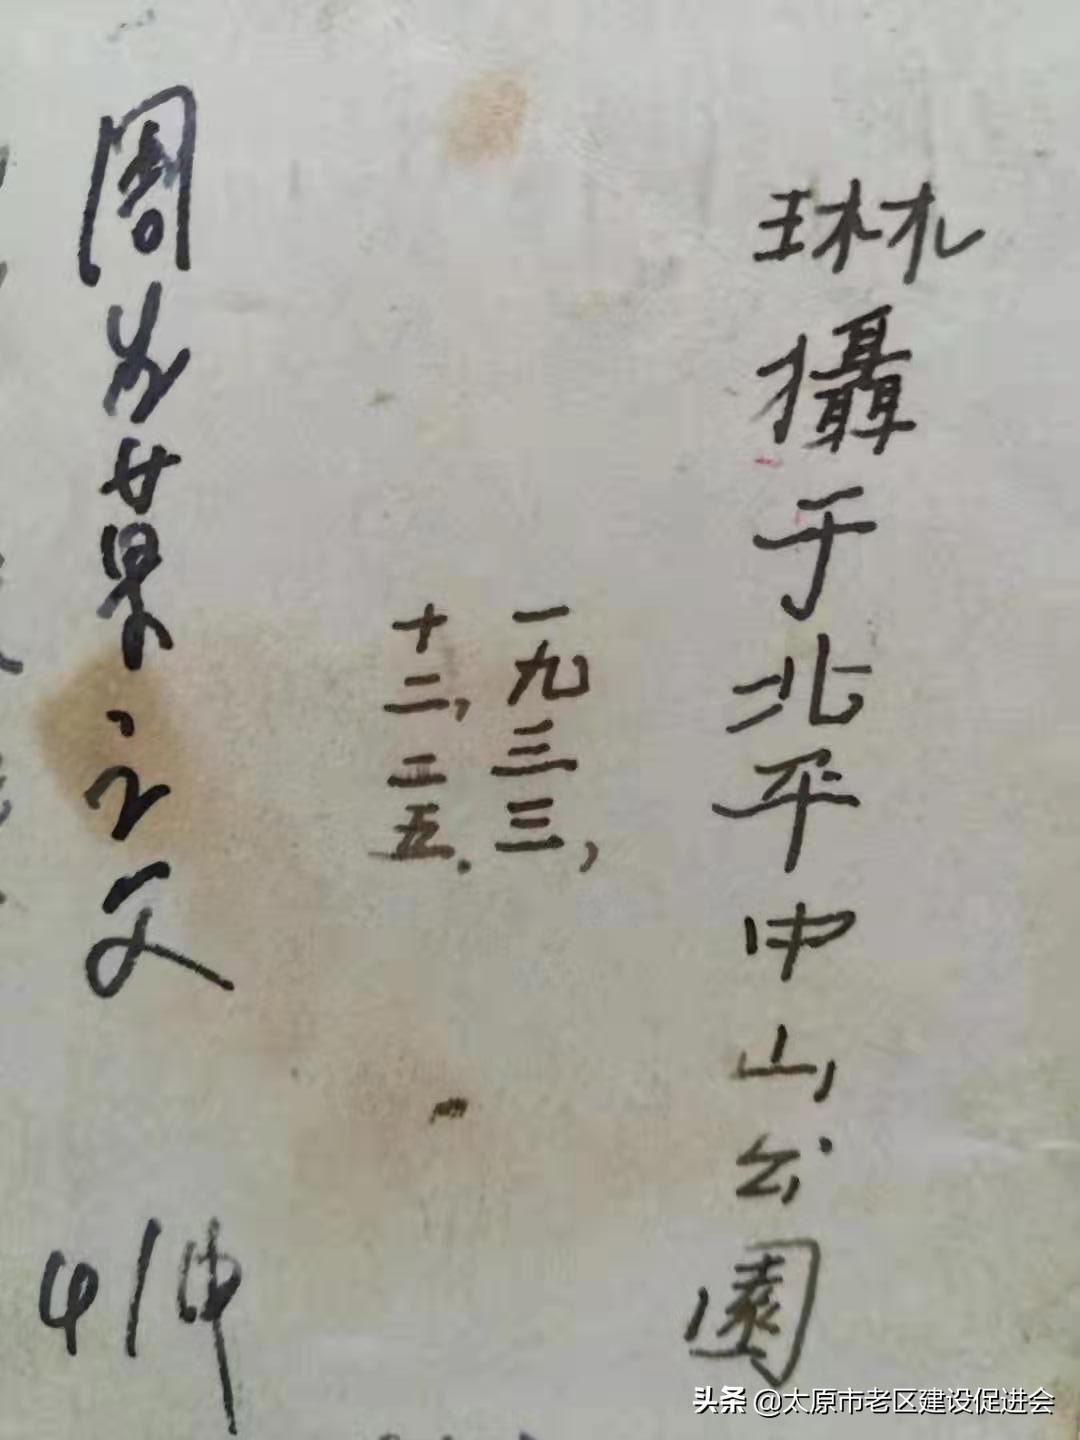 琳攝于北平中山公園
一九三三，
十二，二五．
周 之父
头条 @太原市老区建设促进会